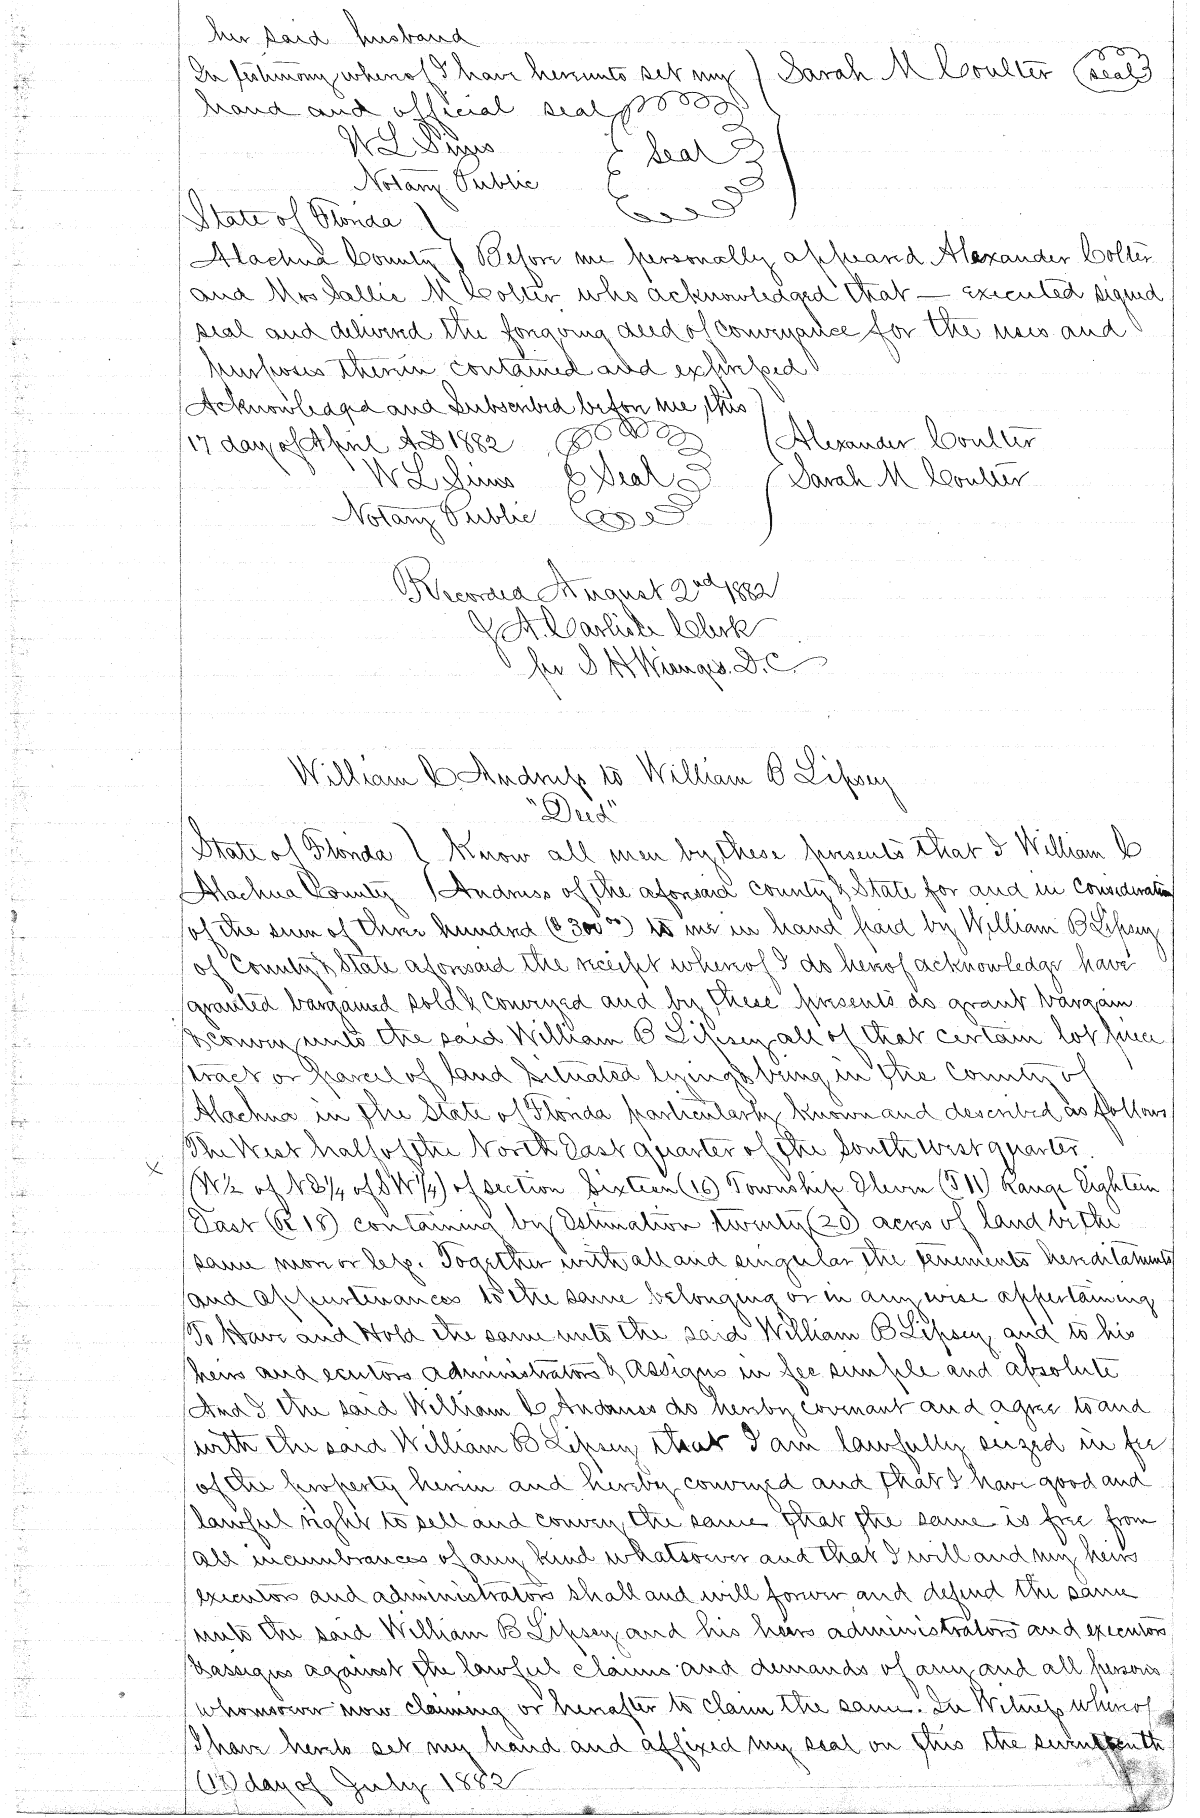 her said husband
In testimony whereof I have hereunto set my ) Sarah M Coulter (seal)
hand and official seal
W L Sims { Seal }
Notary Public
State of Florida )
Alachua County } Before me personally appeard Alexander Colter
and Mrs Sallie M Colter who acknowledged that — executed signed
seal and deliverd the forgoing deed of conveyance for the uses and
purposes therein contained and expressed
Acknowledged and Subscribed before me this )
17 day of April AD 1882 ( Alexander Coulter
W L Sims { Seal } Sarah M Coulter
Notary Public
Recorded August 2nd 1882
J A. Carlisle Clerk
per S H Wienges. D.C.
William C Andruss to William B Lipsey
"Deed"
State of Florida } Know all men by these presents that I William C
Alachua County } Andruss of the aforsaid county & State for and in consideration
of the sum of three hundred ($300 00) to me in hand paid by William B Lipsey
of County & State aforsaid the receipt whereof I do herof acknowledge have
granted bargained sold & conveyed and by these presents do grant bargain
& convey unto the said William B Lipsey all of that certain lot piece
tract or parcel of land situated lying & being in the County of
Alachua in the State of Florida particularly known and described as follows
The West half of the North East quarter of the South West quarter
x (W½ of NE¼ of SW¼) of section Sixteen (16) Township Eleven (T11) Range Eighteen
East (R 18) containing by Estimation twenty (20) acres of land be the
same more or less. Together with all and singular the tenements hereditaments
and appurtenances to the same belonging or in any wise appertaining
To Have and Hold the same unto the said William B Lipsey and to his
heirs and ecutors administrators & assigns in fee simple and absolute
And I the said William C Andruss do hereby covenant and agree to and
with the said William B Lipsey that I am lawfully seized in fee
of the property herein and hereby conveyed and that I have good and
lawful right to sell and convey the same that the same is free from
all incumbrances of any kind whatsoever and that I will and my heirs
executors and administrators shall and will forever and defend the same
unto the said William B Lipsey and his heirs administrators and executors
& assigns against the lawful claims and demands of any and all persons
whomsoever now claiming or hereafter to claim the same. In Witness whereof
I have hereto set my hand and affixed my seal on this the seventeenth
(17) day of July 1882